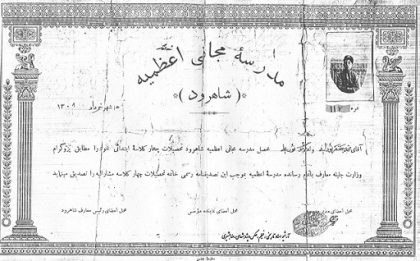 مدرسهٔ مجانی اعظمیه
(شاهرود)
نمره
شهریور ماه ۱۳۰۸
آقای محصل مدرسه مجانی اعظمیه شاهرود تحصیلات چهار کلاسه ابتدائی خود را مطابق پروگرام
وزارت جلیله معارف باتمام رسانده مدرسه اعظمیه بموجب این تصدیقنامه رسمی خاتمه تحصیلات چهار کلاسه مشارالیه را تصدیق مینماید
محل امضای مدیر
محل امضای نماینده مؤسس
محل امضای رئیس معارف شاهرود